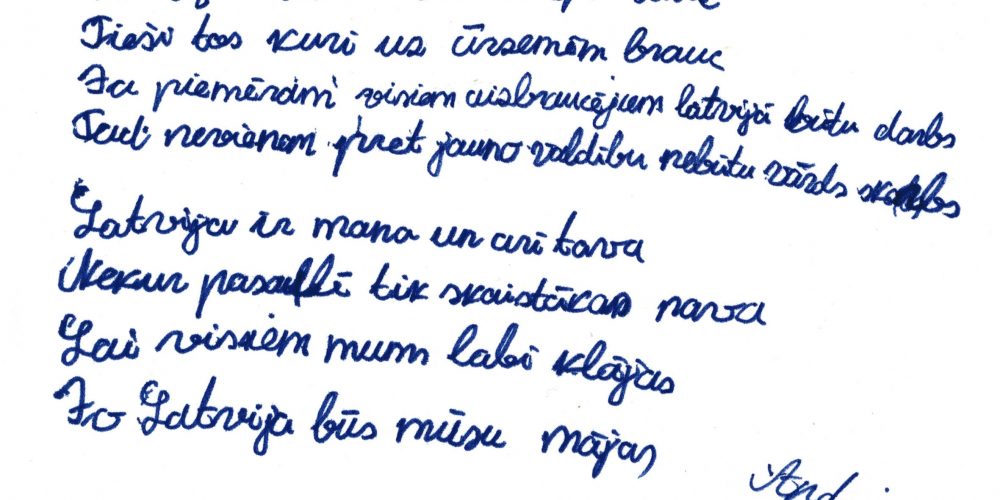 Tieši tos kuri uz ārzemēm brauc
Ja piemēram visiem aizbraucējiem latvijā būtu darbs
Tad nevienam pret jauno valdību nebūtu vārds skarbs
Latvija ir mana un arī tava
Nekur pasaulē tik skaistākas nava
Lai visiem mums labi klājas
Jo Latvija būs mūsu mājas